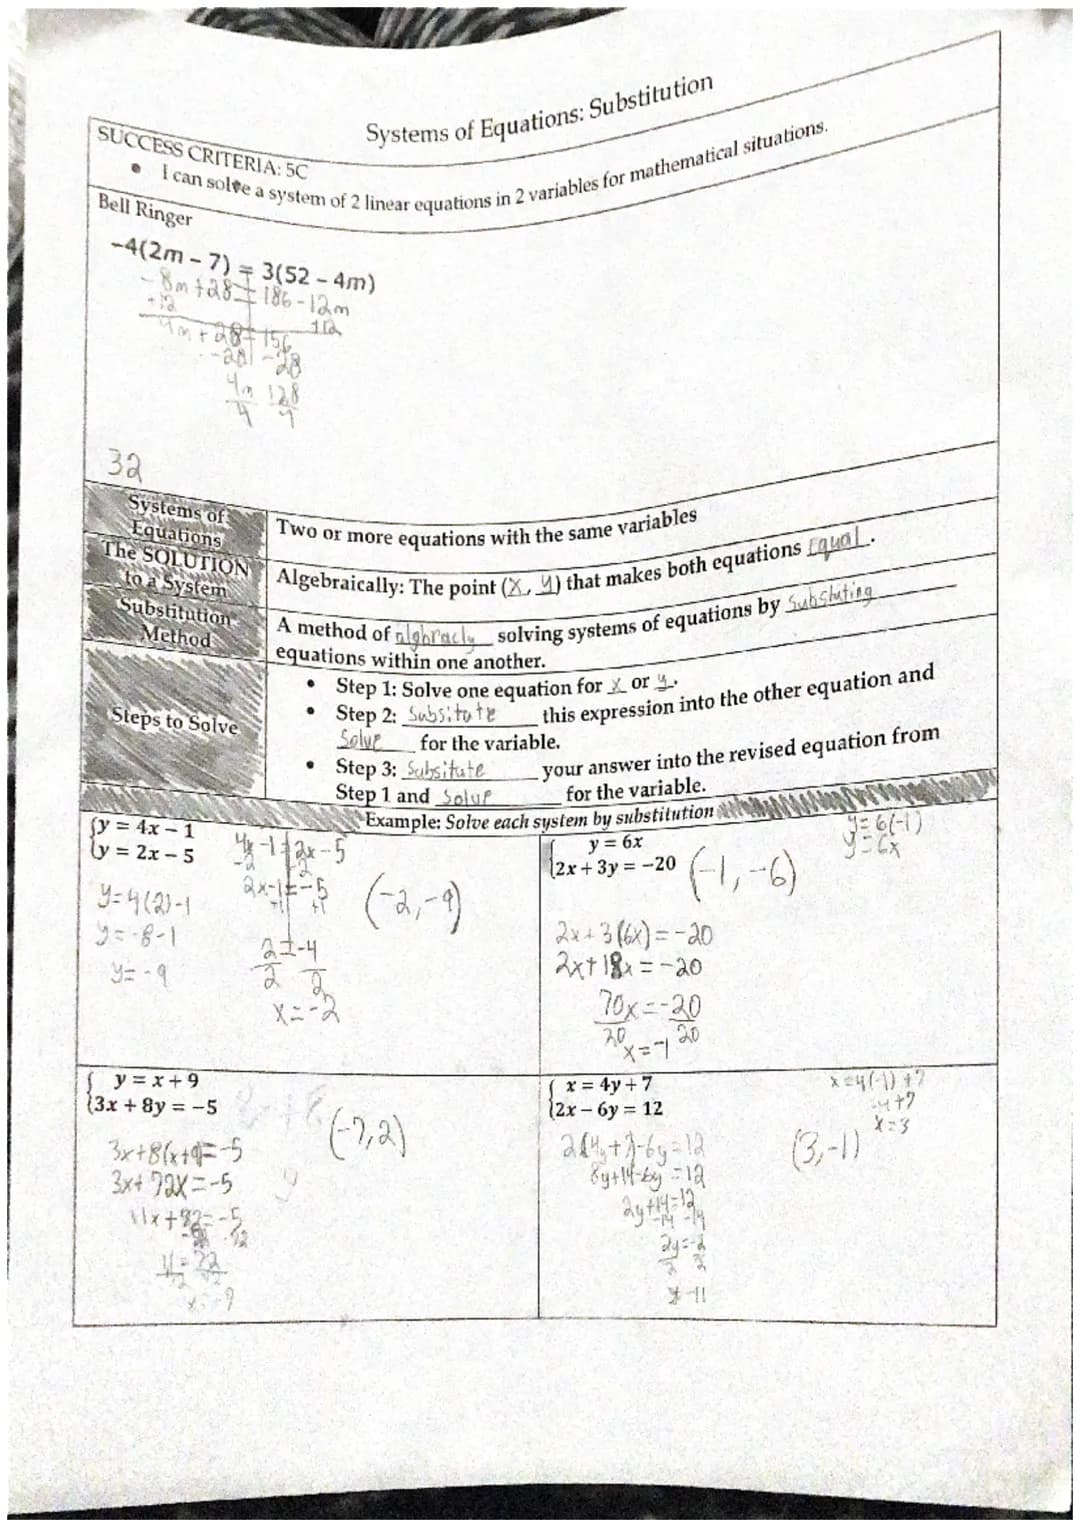 Systems of Equations: Substitution
SUCCESS CRITERIA: 5C
• I can solve a system of 2 linear equations in 2 variables for mathematical situations.
Bell Ringer
-4(2m - 7) = 3(52 - 4m)
-8m +28 = 186 -12m
+12 +12
4m + 28 = 156
-28 -28
4m 128
4 4
32
Systems of Equations
Two or more equations with the same variables
The SOLUTION to a System
Algebraically: The point (x, y) that makes both equations Equal.
Substitution Method
A method of algbracly solving systems of equations by Substuting
equations within one another.
Steps to Solve
• Step 1: Solve one equation for x or y.
• Step 2: Subsitute this expression into the other equation and
Solve for the variable.
• Step 3: Subsitute your answer into the revised equation from
Step 1 and Solve for the variable.
Example: Solve each system by substitution
{y = 4x - 1
{y = 2x - 5
4x -1 = 2x -5
-2 -2
2x-1 = -5
+1 +1
2 = -4
2 2
x = -2
y=4(2)-1
y= -8-1
y= -9
(-2,-9)
y = 6x
2x + 3y = -20
(-1, -6)
y= 6(-1)
y= 6x
2x + 3(6x) = -20
2x + 18x = -20
20x = -20
20 20
x = -1
y = x + 9
3x + 8y = -5
(-7,2)
3x+8(x+9)=-5
3x+ 72x = -5
11x + 72 = -5
x = -7
x = 4y + 7
2x - 6y = 12
x=4(-1) +7
-4+7
x=3
(3,-1)
2(4y+7)-6y=12
8y+14-6y =12
2y+14=12
-14 -14
2y=-2
2 2